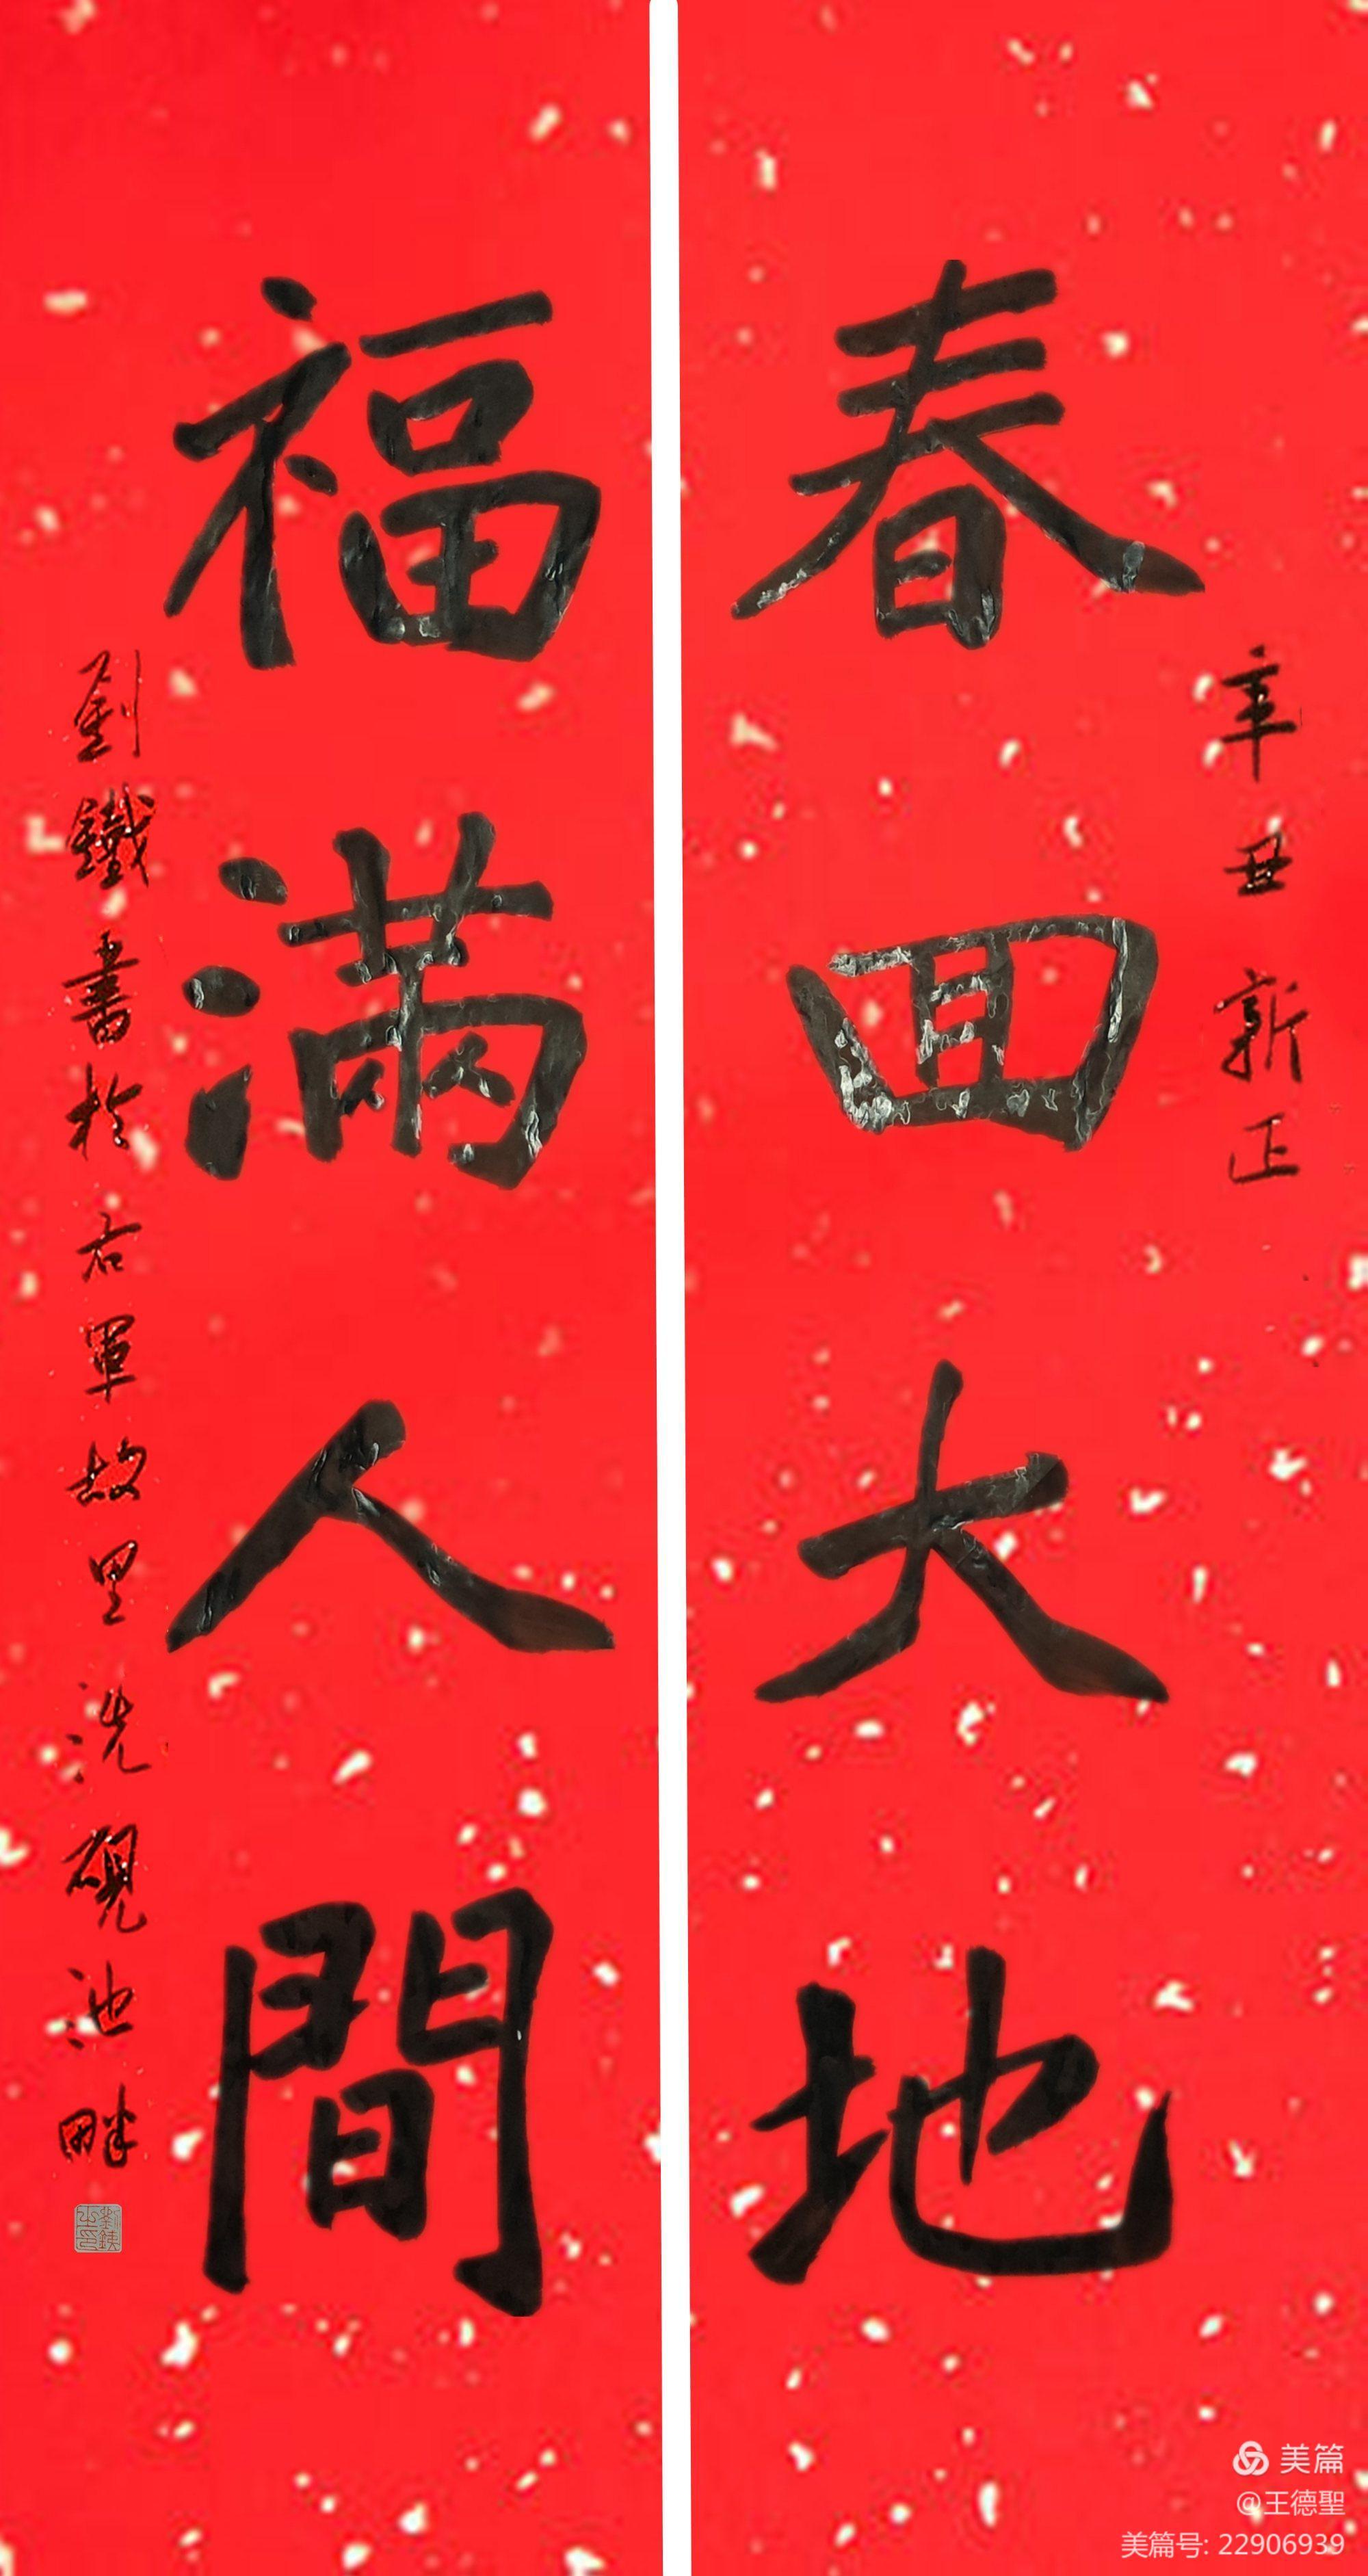 辛丑新正
春回大地
福滿人間
劉鐵書於右軍故里洗硯池畔
劉鐵之印
美篇
@王德聖
美篇号: 22906939